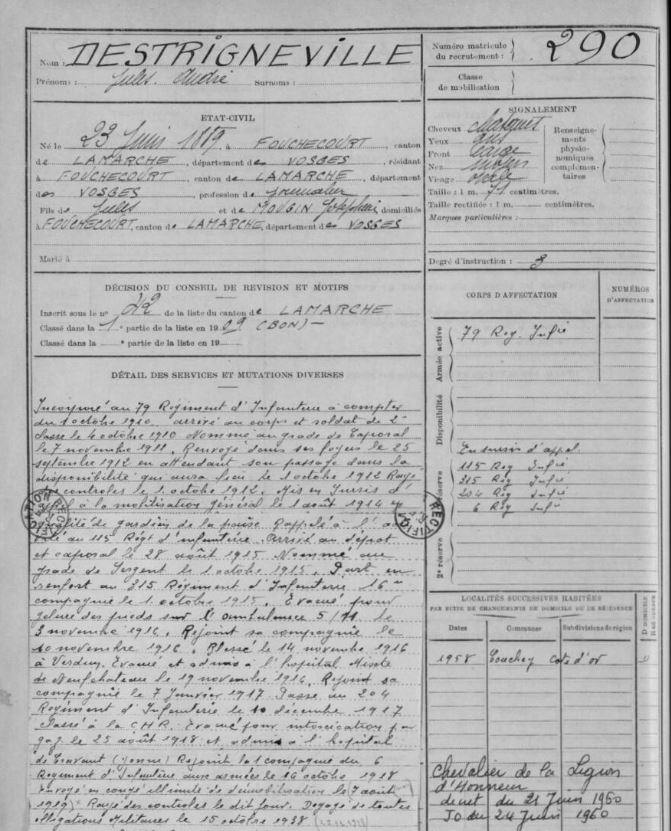 Nom : DESTRIGNEVILLE
Prénoms : Jules André Surnoms :
Numéro matricule du recrutement : 290
Classe de mobilisation
ETAT-CIVIL
Né le 23 Juin 1889, à FOUCHECOURT, canton
de LAMARCHE, département des VOSGES, résidant
à FOUCHECOURT, canton de LAMARCHE, département
des VOSGES, profession de
Fils de Jules et de MOUGIN Joséphine domiciliés
à FOUCHECOURT, canton de LAMARCHE, département des VOSGES
Marié à
SIGNALEMENT
Cheveux
Yeux
Front large
Nez moyen
Visage ovale
Renseignements physionomiques complémentaires
Taille : 1 m. 71 centimètres.
Taille rectifiée : 1 m. centimètres.
Marques particulières :
Degré d'instruction : 3
DÉCISION DU CONSEIL DE REVISION ET MOTIFS
Inscrit sous le n° 22 de la liste du canton de LAMARCHE
Classé dans la 1e partie de la liste en 1909 (BON) –
Classé dans la e partie de la liste en 19
CORPS D'AFFECTATION
NUMÉROS
D'AFFECTATION
Armée active
79 Reg. Infie
Disponibilité
En sursis d'appel
115 Reg Infie
315 Reg Infie
204 Reg Infie
6 Reg Infie
2e réserve
DÉTAIL DES SERVICES ET MUTATIONS DIVERSES
Incorporé au 79 Régiment d'Infanterie à compter
du 1 octobre 1910, arrivé au corps et soldat de 2e
classe le 4 octobre 1910 Nommé au grade de Caporal
le 7 novembre 1911. Renvoyé dans ses foyers le 25
septembre 1912 en attendant son passage dans la
disponibilité qui aura lieu le 1 octobre 1912 Rayé
des controles le 1 octobre 1912. Mis en sursis d'
appel à la mobilisation générale le 1 août 1914 en
qualité de gardien de la Rappelé à l'
au 115 Régt d'infanterie. arrivé au dépot
et caporal le 28 août 1915 Nommé au
grade de Sergent le 1 octobre 1915. Part en
renfort au 315 Régiment d'Infanterie 16me
compagnie le 1 octobre 1915, Evacué pour
gelure des pieds sur l'ambulance 5/ le
3 novembre 1916, Rejoint sa compagnie le
10 novembre 1916. Blessé le 14 novembre 1916
à Verdun. Evacué et admis à l'hopital Mixte
de Neufchateau le 19 novembre 1916. Rejoint sa
compagnie le 7 Janvier 1917 Passé au 204
Régiment d'Infanterie le 10 décembre 1917
Passé à la C.H.R. Evacué pour intoxication par
gaz le 25 août 1918 et admis à l'hopital
de Cravant (Yonne) Rejoint la 1 compagnie du 6
Régiment d'Infanterie aux armées le 16 octobre 1918
Envoyé en congé illimité de démobilisation le 7 août
1919. Rayé des controles le dit jour. Dégagé de toutes
obligations Militaires le 15 octobre 1938
RECTIFICATION
RECTIFICATION
LOCALITÉS SUCCESSIVES HABITÉES
PAR SUITE DE CHANGEMENTS DE DOMICILE OU DE RÉSIDENCE
Dates Communes Subdivisions de région D domicile R résidence
1958 Couchey cote d'or D
Chevalier de la Légion
d'Honneur
décret du 21 Juin 1960
JO du 24 Juin 1960